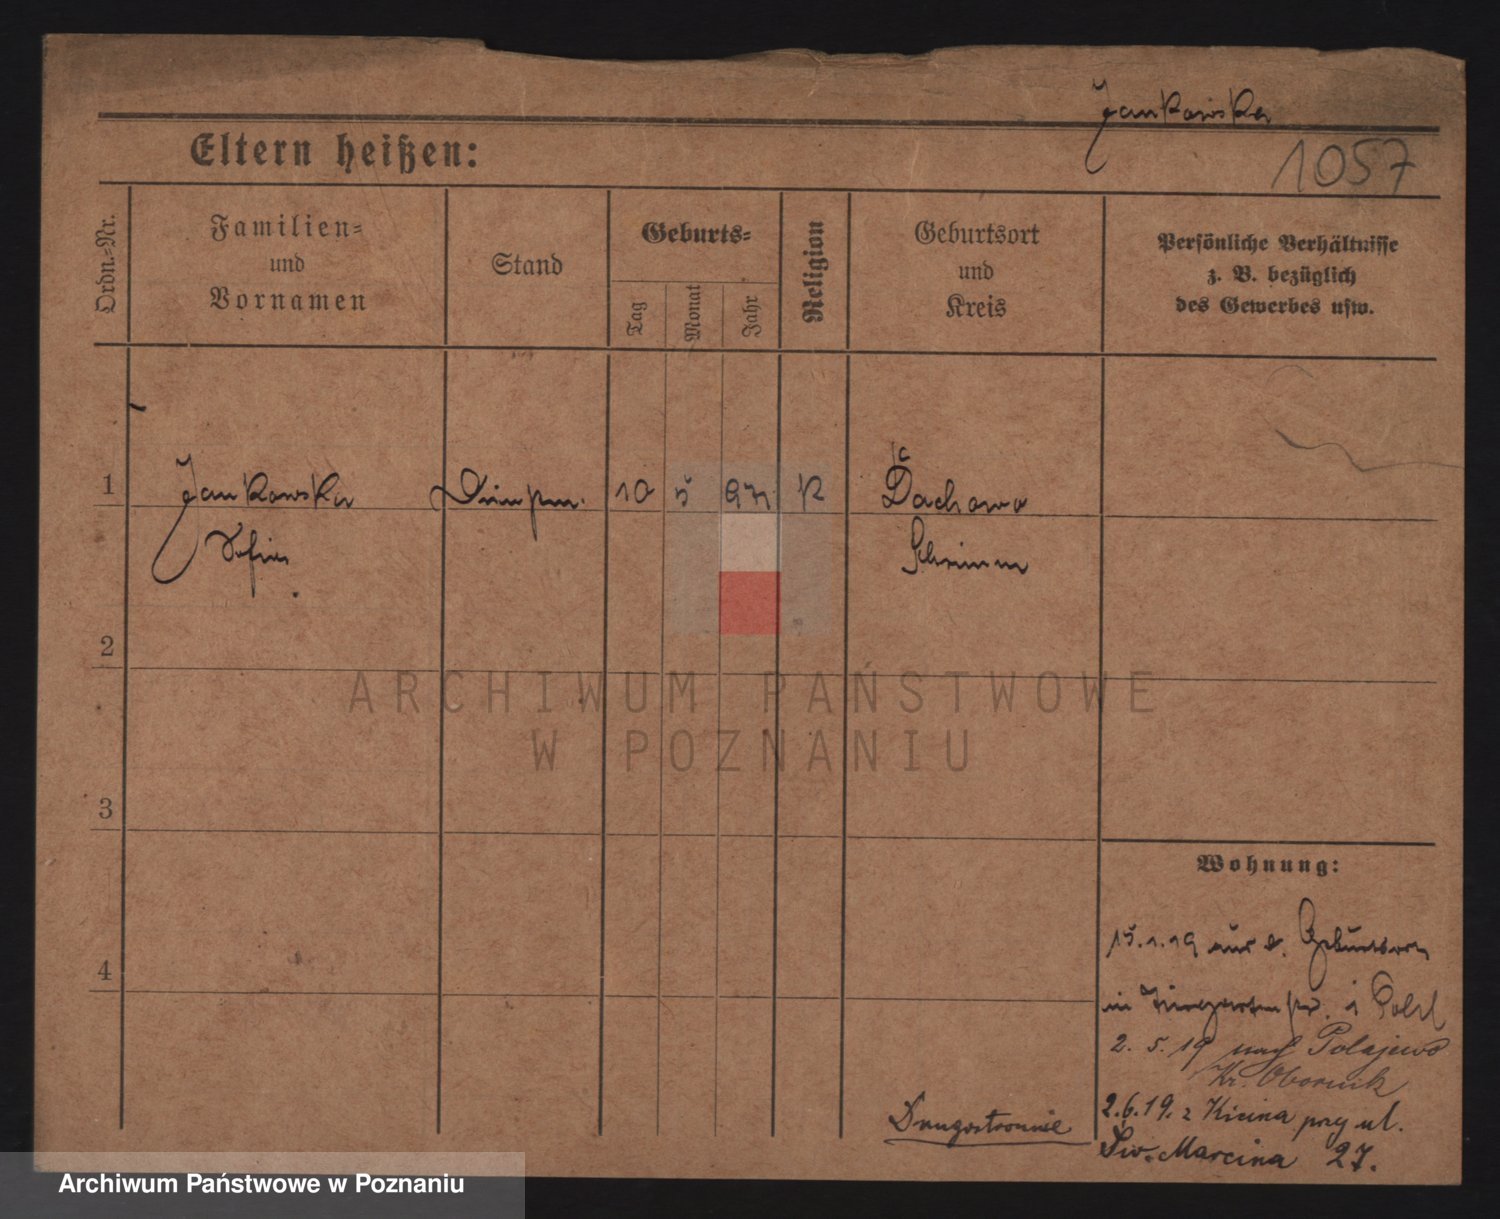 Jankowska
1057
Eltern heißen:
Ordn.-Nr.
Familien-
und
Vornamen
Stand
Geburts-
Tag
Monat
Jahr
Religion
Geburtsort
und
Kreis
Persönliche Verhältnisse
z. B. bezüglich
des Gewerbes usw.
1
Jankowska
Sofia
10
5
97
K
Dachowo
Schrimm
2
3
4
ARCHIWUM PAŃSTWOWE
W POZNANIU
Wohnung:
15.1.19 aus d. Geburtsort
in
2. 5. 19 nach Polajewo
Kr. Obornik
2.6.19. z Kicina przy ul.
Św. Marcina 27.
Drugostronnie
Archiwum Państwowe w Poznaniu